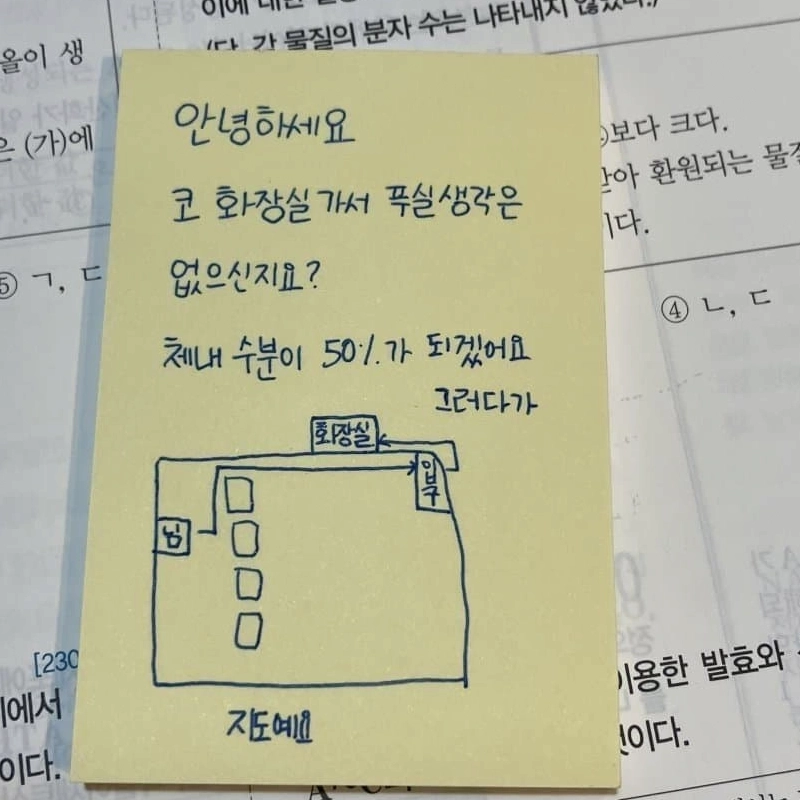 이에 대한
(단, 각 물질의 분자 수는 나타내지 않았다.)
올이 생
은 (가)에
⑤ ㄱ, ㄷ
보다 크다.
아 환원되는 물질
이다.
④ ㄴ, ㄷ
안녕하세요
코 화장실가서 푹실생각은
없으신지요?
체내 수분이 50%가 되겠어요
그러다가
화장실
입구
님
지도예요
[230
에서
이다.
이용한 발효와
것이다.